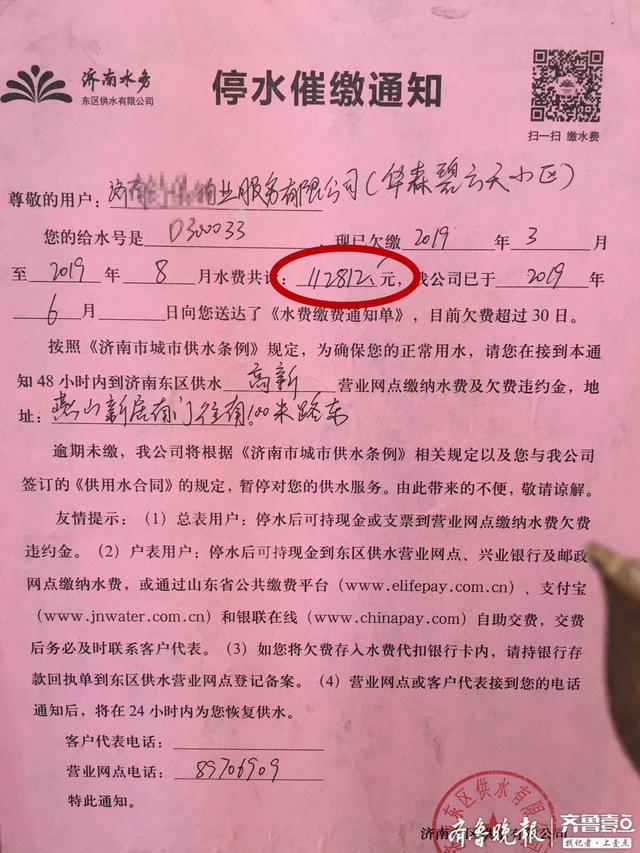 济南水务
东区供水有限公司
停水催缴通知
扫一扫 缴水费
尊敬的用户：济南 业服务有限公司（华森碧云天小区）
您的给水号是 D300033 ，现已欠缴 2019 年 3 月
至 2019 年 8 月水费共计：112812.元，我公司已于 2019 年
6 月 日向您送达了《水费缴费通知单》，目前欠费超过 30 日。
按照《济南市城市供水条例》规定，为确保您的正常用水，请您在接到本通
知 48 小时内到济南东区供水 高新 营业网点缴纳水费及欠费违约金，地
址：燕山新居南门往南100米路东
逾期未缴，我公司将根据《济南市城市供水条例》相关规定以及您与我公司
签订的《供用水合同》的规定，暂停对您的供水服务。由此带来的不便，敬请谅解。
友情提示：（1）总表用户：停水后可持现金或支票到营业网点缴纳水费欠费
违约金。（2）户表用户：停水后可持现金到东区供水营业网点、兴业银行及邮政
网点缴纳水费，或通过山东省公共缴费平台（www.elifepay.com.cn）、支付宝
（www.jnwater.com.cn）和银联在线（www.chinapay.com）自助交费，交费
后务必及时联系客户代表。（3）如您将欠费存入水费代扣银行卡内，请持银行存
款回执单到东区供水营业网点登记备案。（4）营业网点或客户代表接到您的电话
通知后，将在 24 小时内为您恢复供水。
客户代表电话：
营业网点电话：89706909
特此通知。
东区供水有限
济南 东区供水有限公司
齐鲁晚报
齐鲁壹点
找记者·上壹点